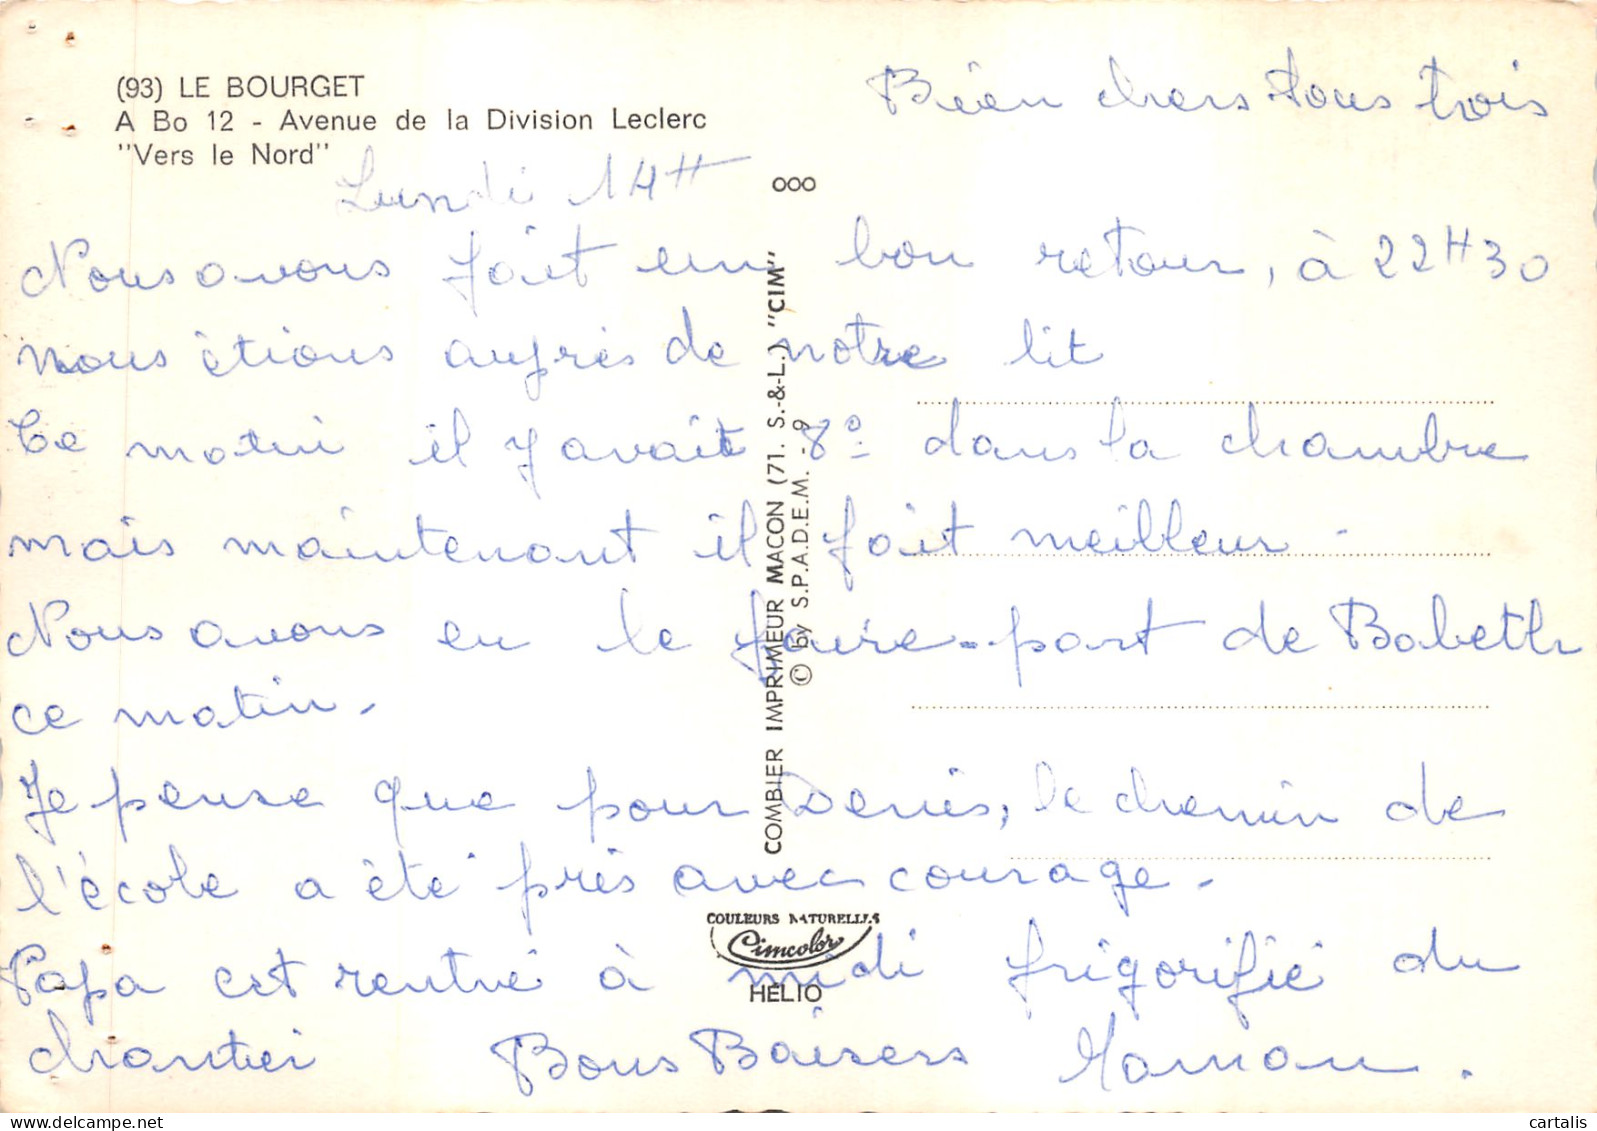 (93) LE BOURGET
A Bo 12 - Avenue de la Division Leclerc
"Vers le Nord"
Bien chers tous trois
Lundi 14H
Nous avons fait un bon retour, à 22H30
nous étions auprès de notre lit
Ce matin il y avait 8° dans la chambre
mais maintenant il fait meilleur -
Nous avons eu le faire-part de Babeth
ce matin -
Je pense que pour Denis, le chemin de
l'école a été pris avec courage -
Papa est rentré à midi frigorifié du
chantier Bons Baisers Maman.
ooo
COMBIER IMPRIMEUR MACON (71. S.-&-L.) "CIM"
© by S.P.A.D.E.M. - 9
COULEURS NATURELLES
Cimcolor
HELIO
cartalis